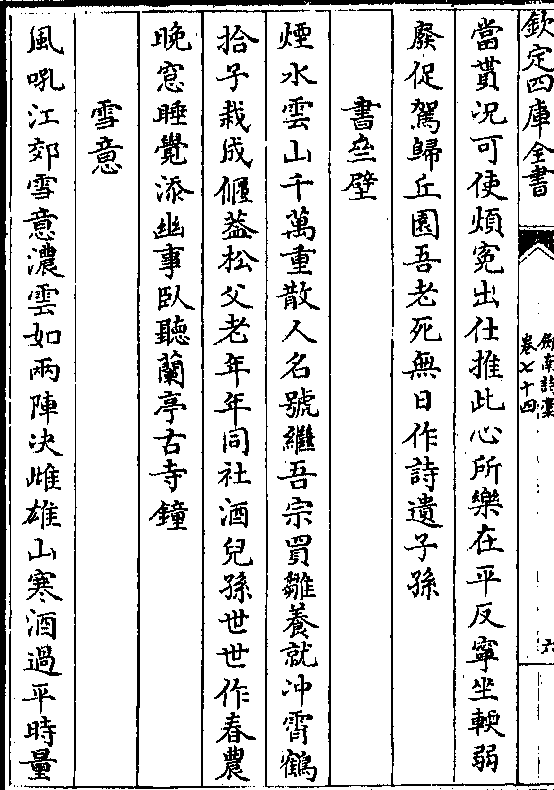 欽定四庫全書
劍南詩藁
卷七十四
六
當貰况可使煩寃出仕推此心所樂在平反寧坐輭弱
廢促駕歸丘園吾老死無日作詩遺子孫
書屋壁
煙水雲山千萬重散人名號繼吾宗買雛養就冲霄鶴
拾子栽成偃葢松父老年年同社酒兒孫世世作春農
晩窓睡覺添幽事卧聽蘭亭古寺鐘
雪意
風吼江郊雪意濃雲如兩陣决雌雄山寒酒過平時量